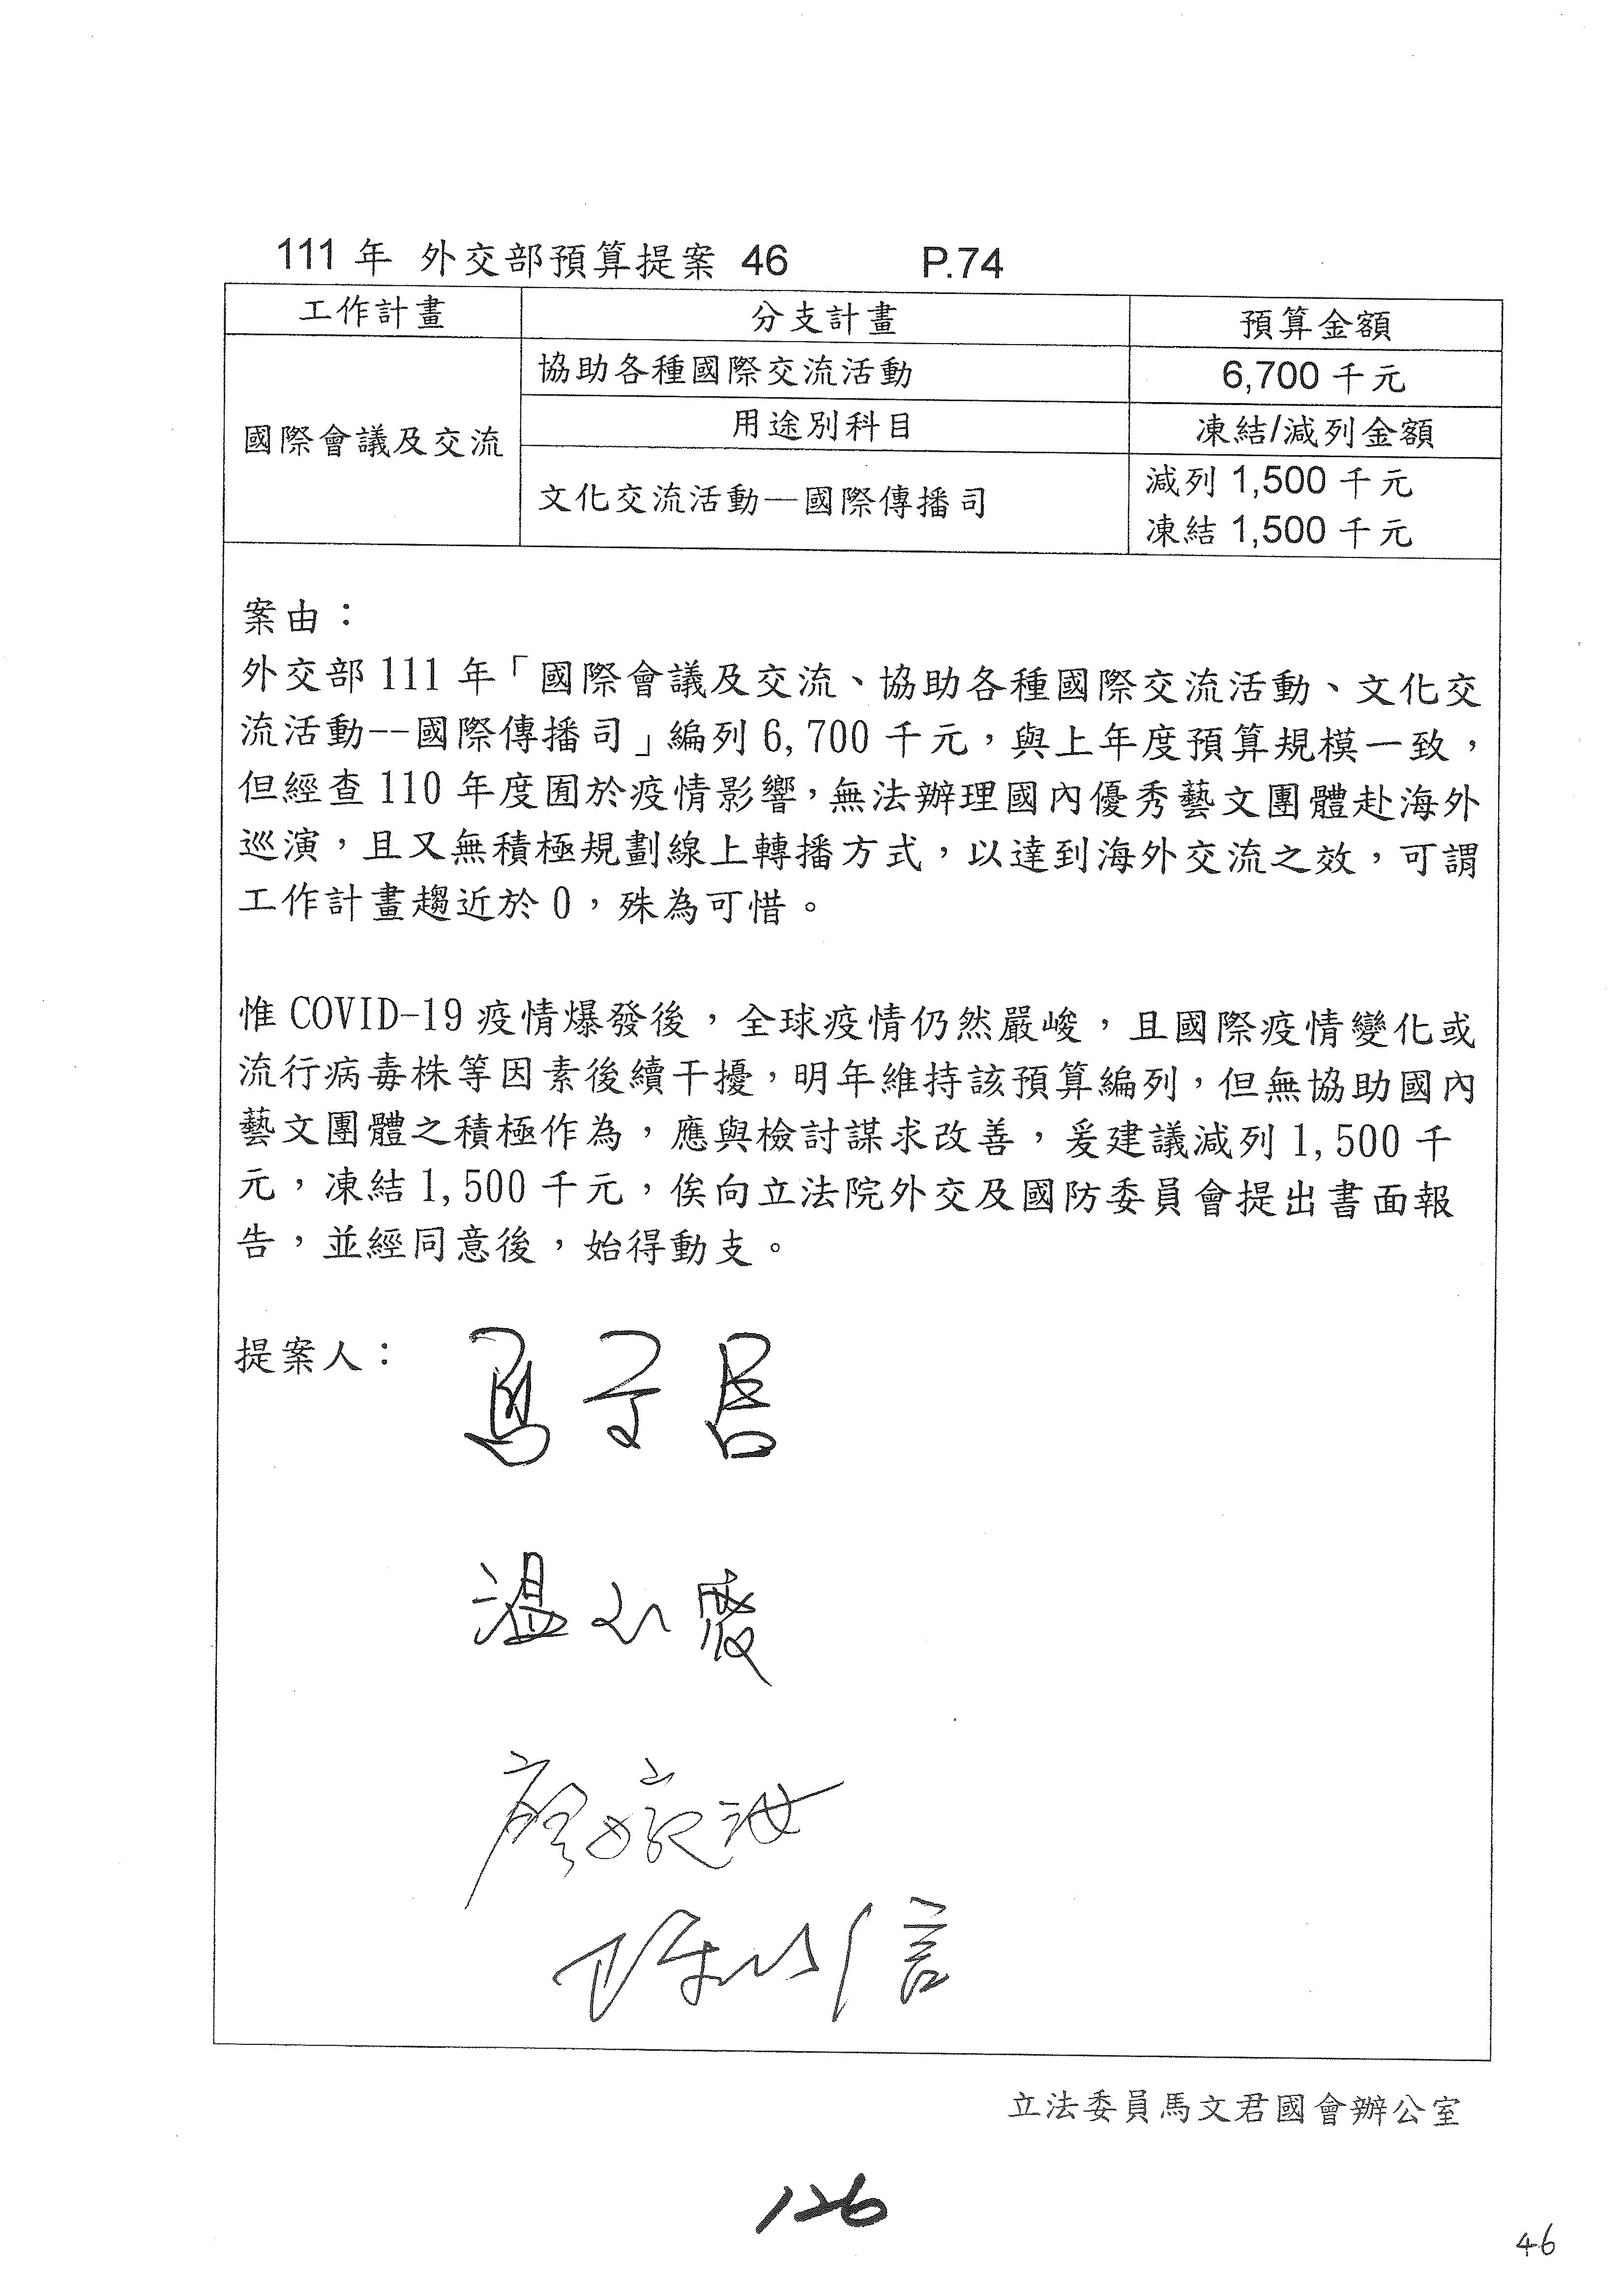 111 年 外交部預算提案 46 P.74
工作計畫 分支計畫 預算金額
國際會議及交流 協助各種國際交流活動 6,700 千元
用途別科目 凍結/減列金額
文化交流活動—國際傳播司 減列 1,500 千元
凍結 1,500 千元
案由：
外交部 111 年「國際會議及交流、協助各種國際交流活動、文化交
流活動--國際傳播司」編列 6,700 千元，與上年度預算規模一致，
但經查 110 年度囿於疫情影響，無法辦理國內優秀藝文團體赴海外
巡演，且又無積極規劃線上轉播方式，以達到海外交流之效，可謂
工作計畫趨近於 0，殊為可惜。
惟 COVID-19 疫情爆發後，全球疫情仍然嚴峻，且國際疫情變化或
流行病毒株等因素後續干擾，明年維持該預算編列，但無協助國內
藝文團體之積極作為，應與檢討謀求改善，爰建議減列 1,500 千
元，凍結 1,500 千元，俟向立法院外交及國防委員會提出書面報
告，並經同意後，始得動支。
提案人：
馬文君
溫玉霞
廖婉汝
陳以信
立法委員馬文君國會辦公室
126
46